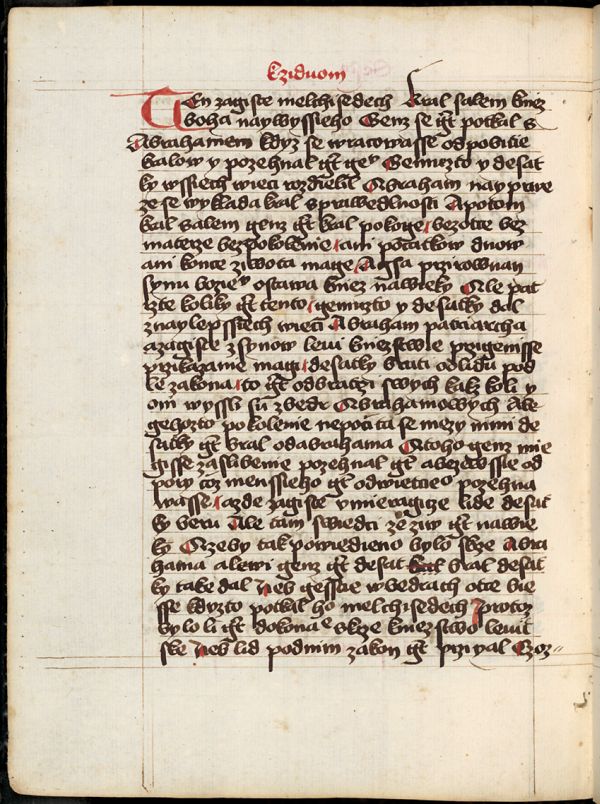 kziduom
Ten zagiste melchisedech kral salem knez
boha naywyssieho Genz se gt potkal s
Abrahamem kdyz se wracowasse odpobitie
kalow y pozehnal gt geo Gemuzto y desat
ky wssiech wieci rozdielil Abraham nayprwe
ze se wyklada kral sprawedlnosti Apotom
kral salem genz gt kral pokoge bezotce bez
materze bezpokolenie ani pocatkow dnow
ani konce ziwota mage Agsa przirownan
synu bozieo ostawa knez nawieky Ale pat
rzte koliky gt tento gemuzto y desatky dal
znaylepssiech wieci Abraham patriarcha
azagiste zsynow leui kniezstwie przigemsse
przikazanie magi desatky brati odlidu pod
le zakona to gt odbratrzi swych kakz koli y
oni wyssli su zbedr Abrahamowych Ale
gehozto pokolenie nepocita se mezy nimi de
satky gt bral odabrahama Atoho genz mie
gisse zaslibenie pozehnal gt abezewssie od
pory coz menssieho gt odwietcieo pozehna
wasse azde zagiste ymieragicze lide desat
ky beru Ale tam swiedci ze ziw gt nawie
ky Azeby tak powiedieno bylo skze Abra
hama alewi genz gt desat kral bral desat
ky take dal Neb gessce wbedrach otce bie
sse kdyzto potkal ho melchisedech protoz
bylo li gt dokonae skrze kniezstwo leuit
ske Neb lid podnim zakon gt przyyal Czoz